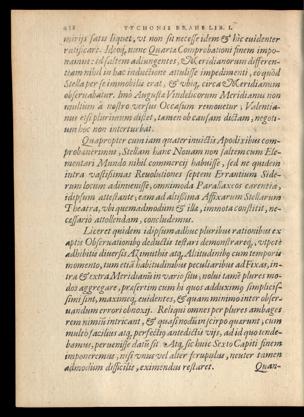 TYCHONIS BRAHE LIB. I.
mirijs satus liquet, vt non sit necesse idem & hîc euidenter
ratiscare. Ideoq, nunc Quarta Comprobationi finem impo-
namus: id saltem adiungentes, Meridianorum differen-
tiam nihil in hac inductione attulisse impedimenti, eo quòd
Stella per se immobilis erat, & vbiq, circa Meridianum
obseruabatur. Imò Augusta Vindelicorum Meridianus non
multum à nostro versus Occasum remouetur, Valentia-
nus etsi plurimum distet, tamen ob causam dictam, negoti-
um hoc non interturbat.
Quapropter cum iam quater inuictis Apodixibus com-
probauerimus, Stellam hanc Nouam non saltem cum Ele-
mentari Mundo nihil commercij habuisse, sed ne quidem
intra vastissimas Reuolutiones septem Errantium Side-
rum locum adinuenisse, omnimoda Parallaxeos carentia,
idipsum attestante, eam ad altissima Affixarum Stellarum
Theatra, vbi quemadmodum & illæ, immota constitit, ne-
cessariò attollendam, concludemus.
Liceret quidem idipsum adhuc pluribus rationibus ex
aptis Obseruationibus deductis testari demonstrareq, vtpotè
adhibitis diuersis Azimuthis atq, Altitudinibus cum temporis
momento, tum etiã habitudinibus peculiaribus ad Fixas, in-
tra & extra Meridianũ in vario situ, nolui tamẽ plures mo-
dos aggregare, præsertim cum hi quos adduximus simplicis-
simi sint, maximeq, euidentes, & quam minimo inter obser-
uandum errori obnoxij. Reliqui omnes per plures ambages
rem nimiùm intricant, & quasi nodũ in scirpo quærunt, cum
multo facilius atq, perfectiùs antedictis vijs, ad id quo tende-
bamus, peruenisse datũ sit. Atq, sic huic Sexto Capiti finem
imponeremus, nisi vnus vel alter scrupulus, neuter tamen
admodum difficilis, eximendus restaret.
Quan-